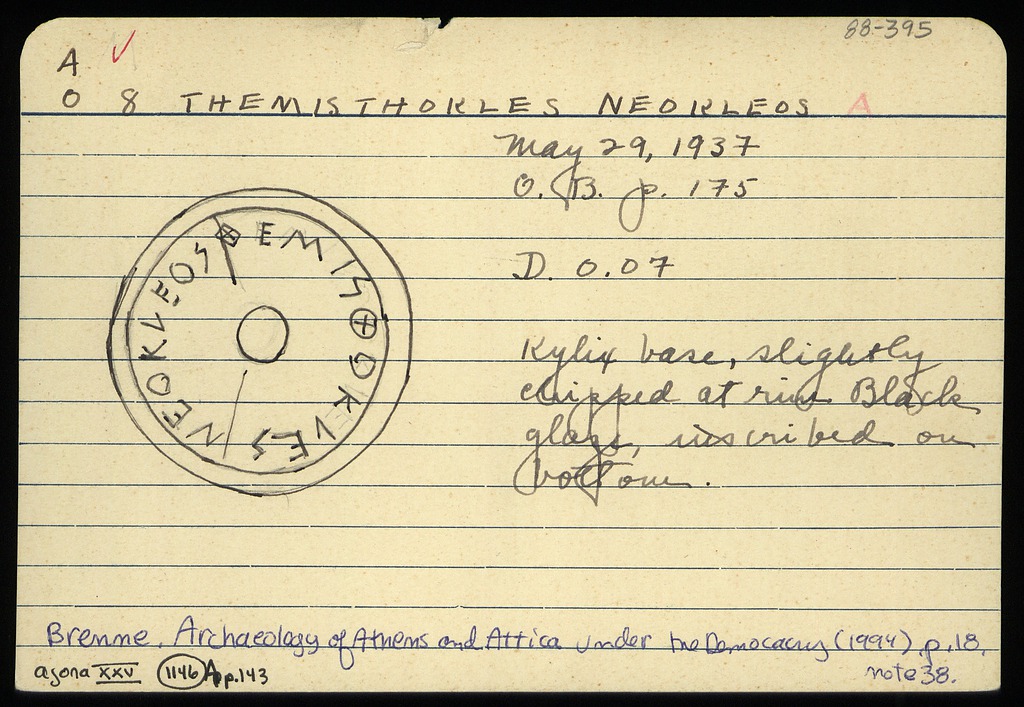 88-395
A ✓
O 8 THEMISTHOKLES NEOKLEOS A
May 29, 1937
O. B. p. 175
D. 0.07
ΘΕΜΙΣΘΟΚΛΕΣ
ΝΕΟΚΛΕΟΣ
Kylix base, slightly
chipped at rim. Black
glaze, inscribed on
bottom.
Bremme. Archaeology of Athens and Attica under the Democacry (1994). p.18,
note 38.
agora XXV 1146 A p.143